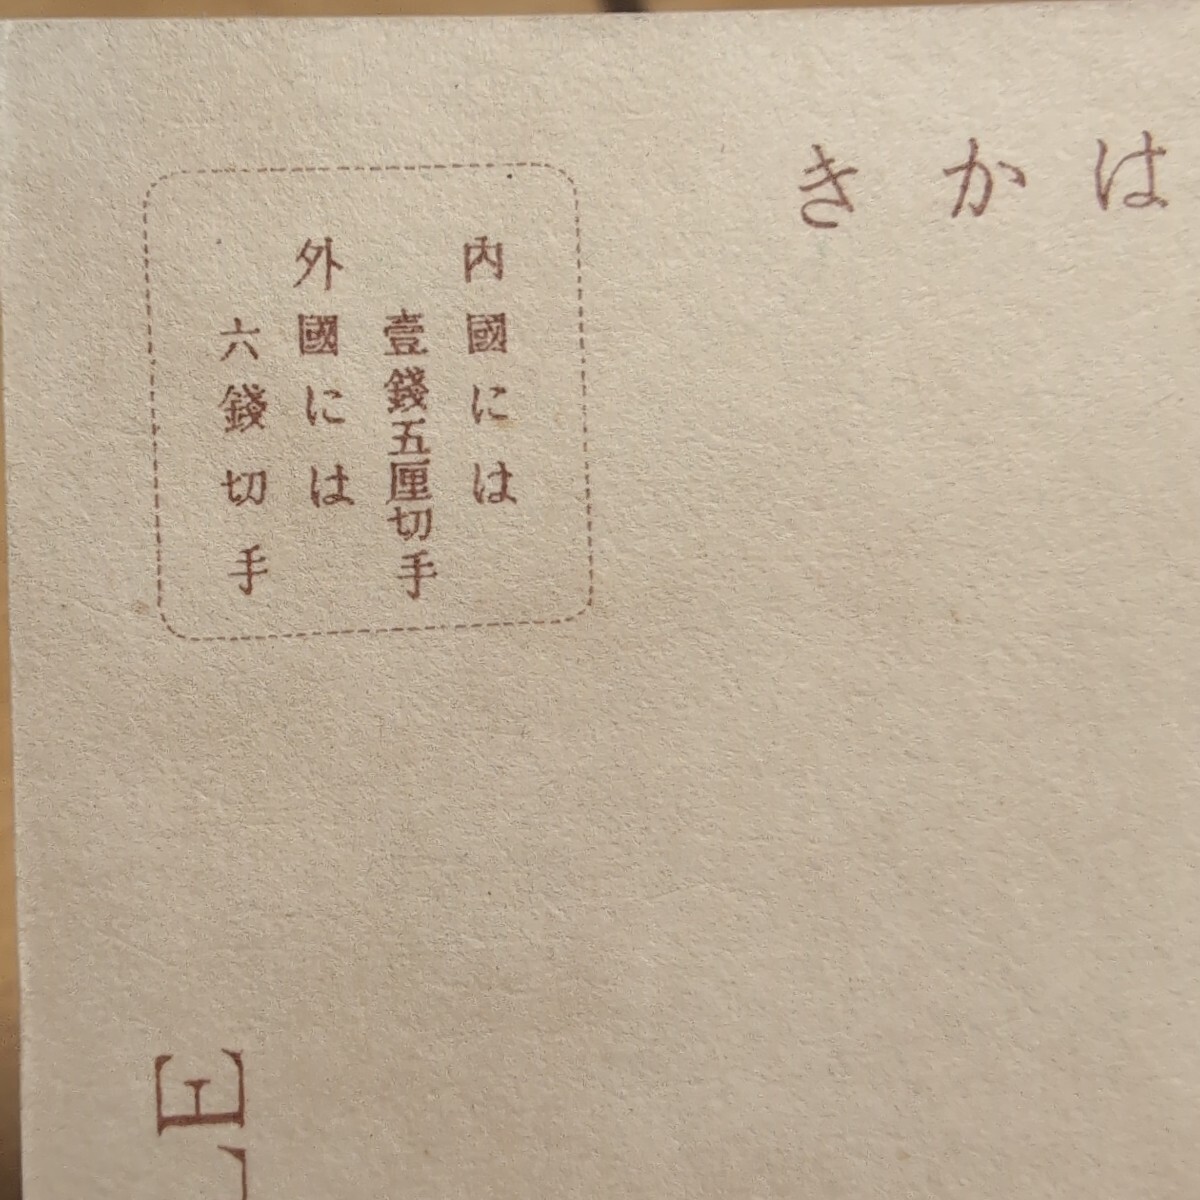 きかは
内國には
壹錢五厘切手
外國には
六錢切手
E